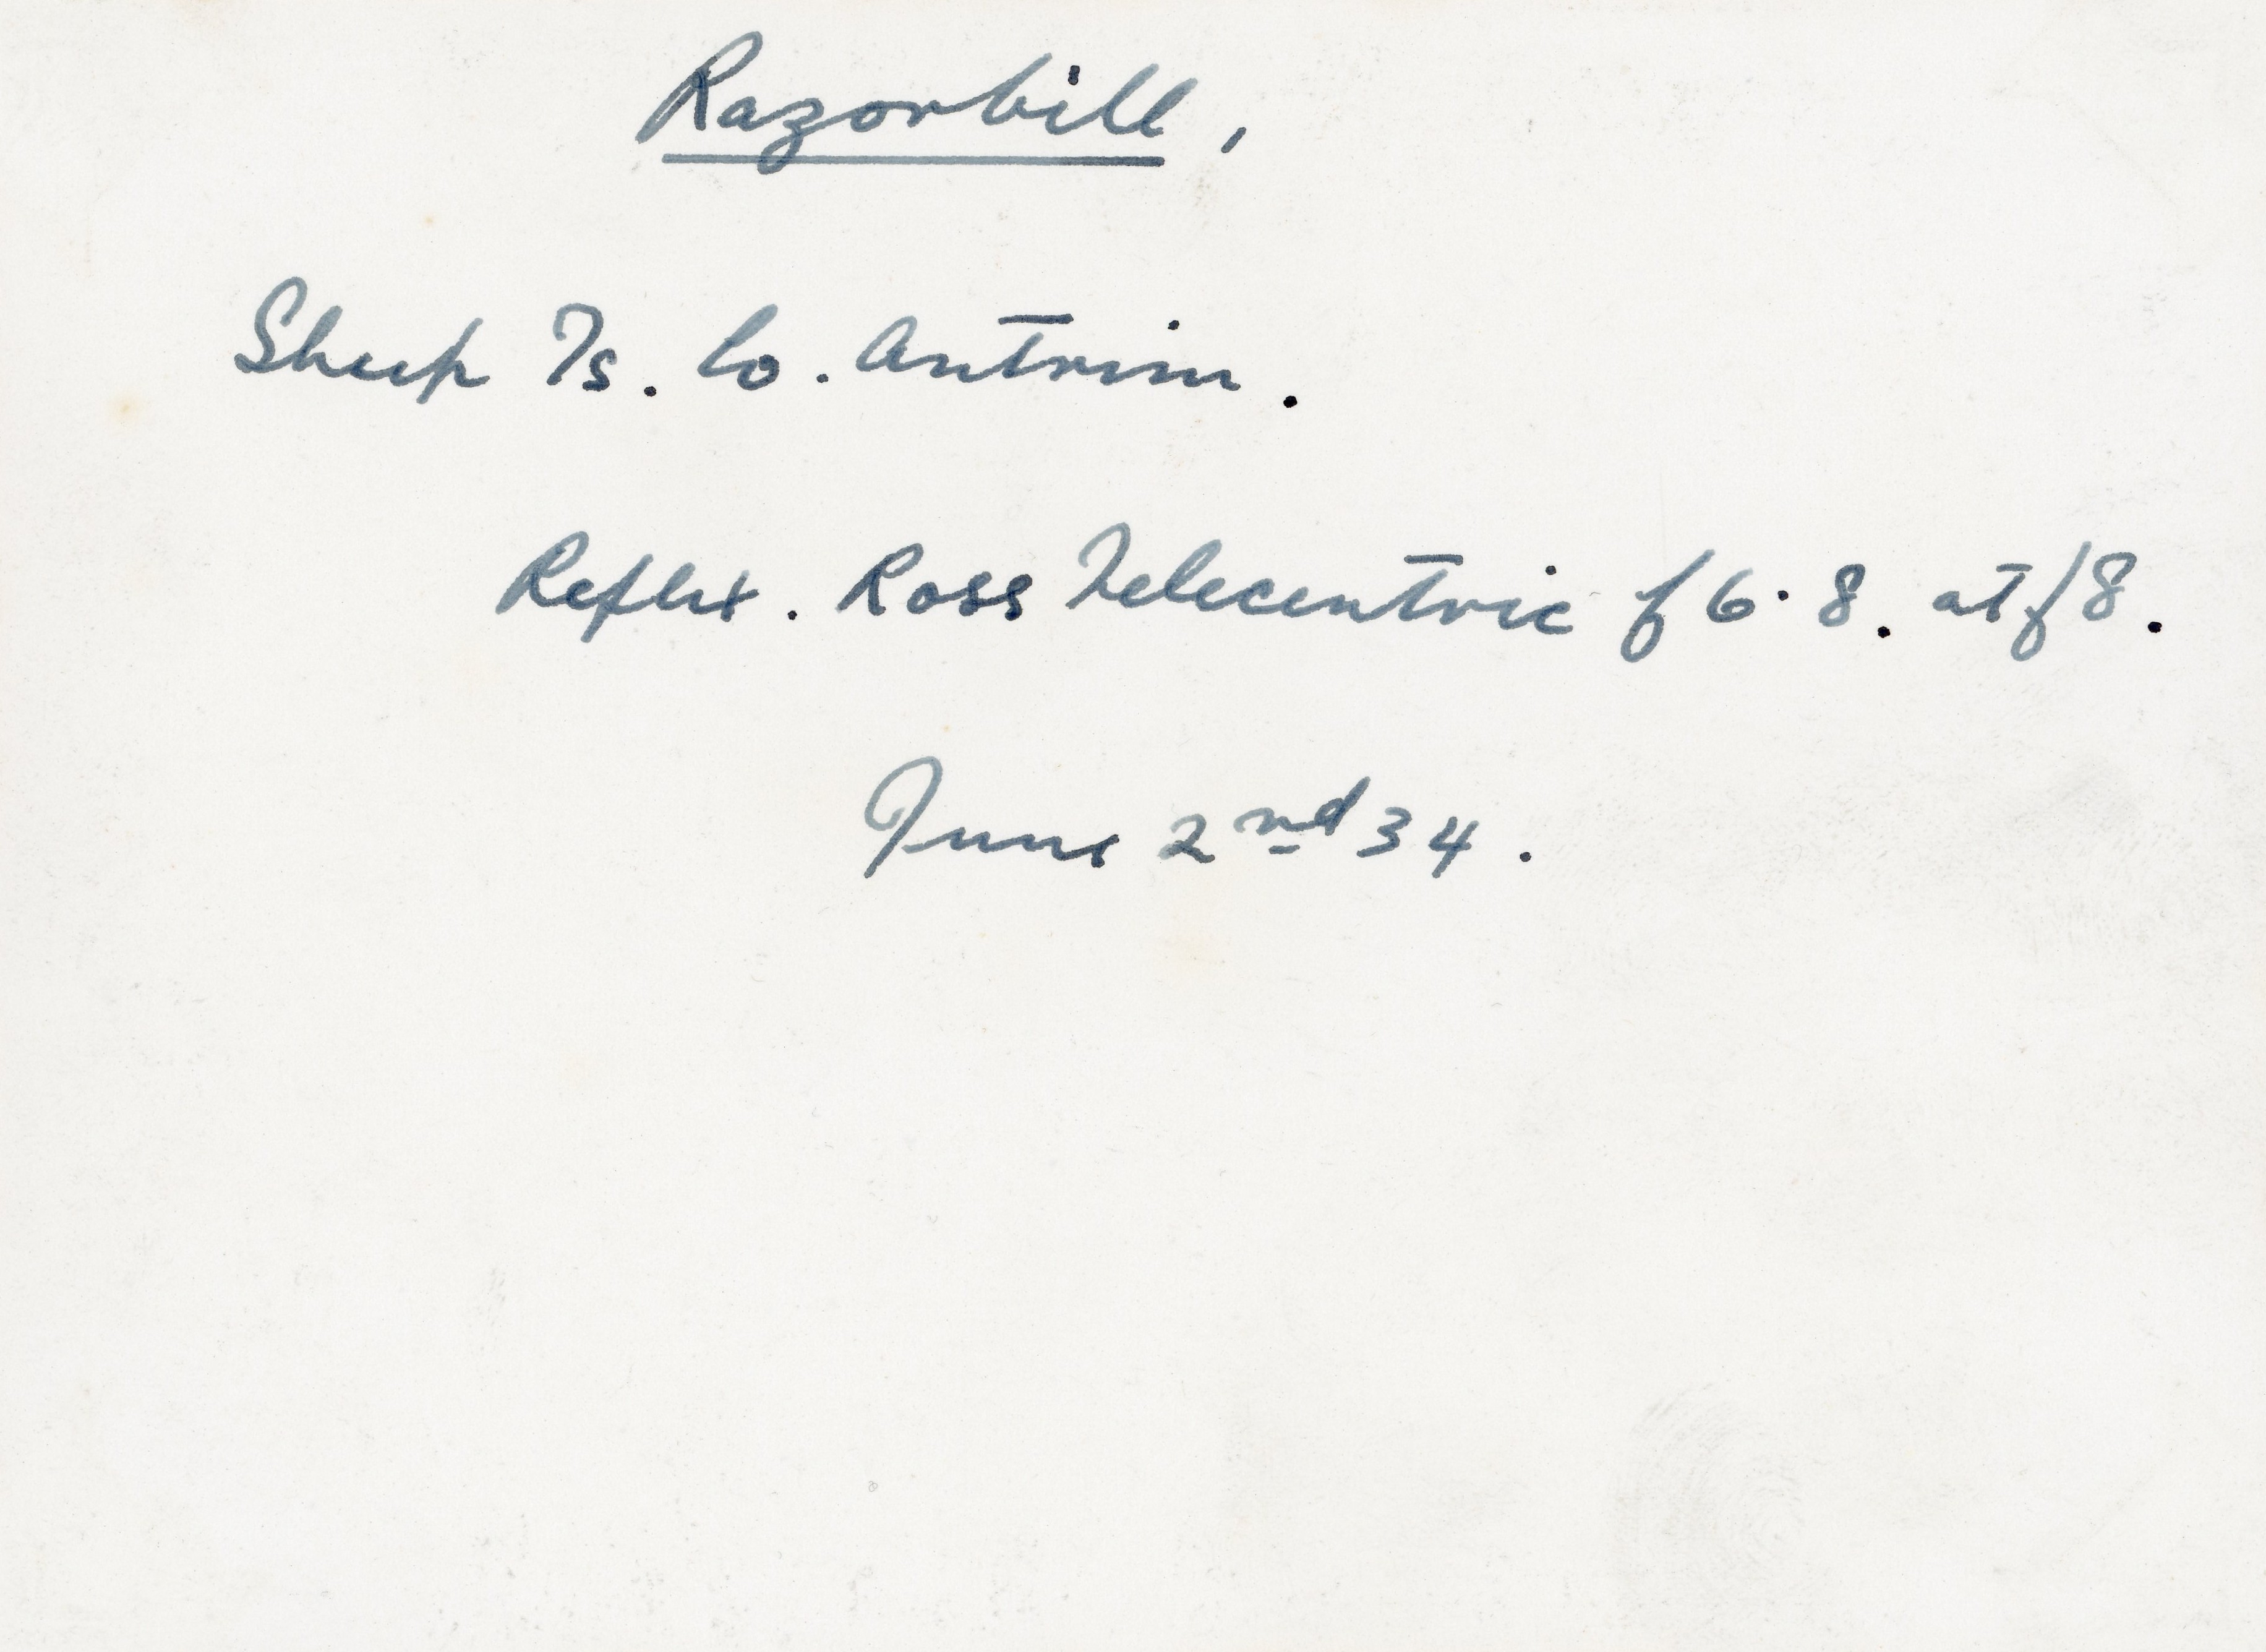 Razorbill,
Sheep Is. Co. Antrim.
Reflex. Ross Telecentric f6·8. at f8.
June 2nd 34.